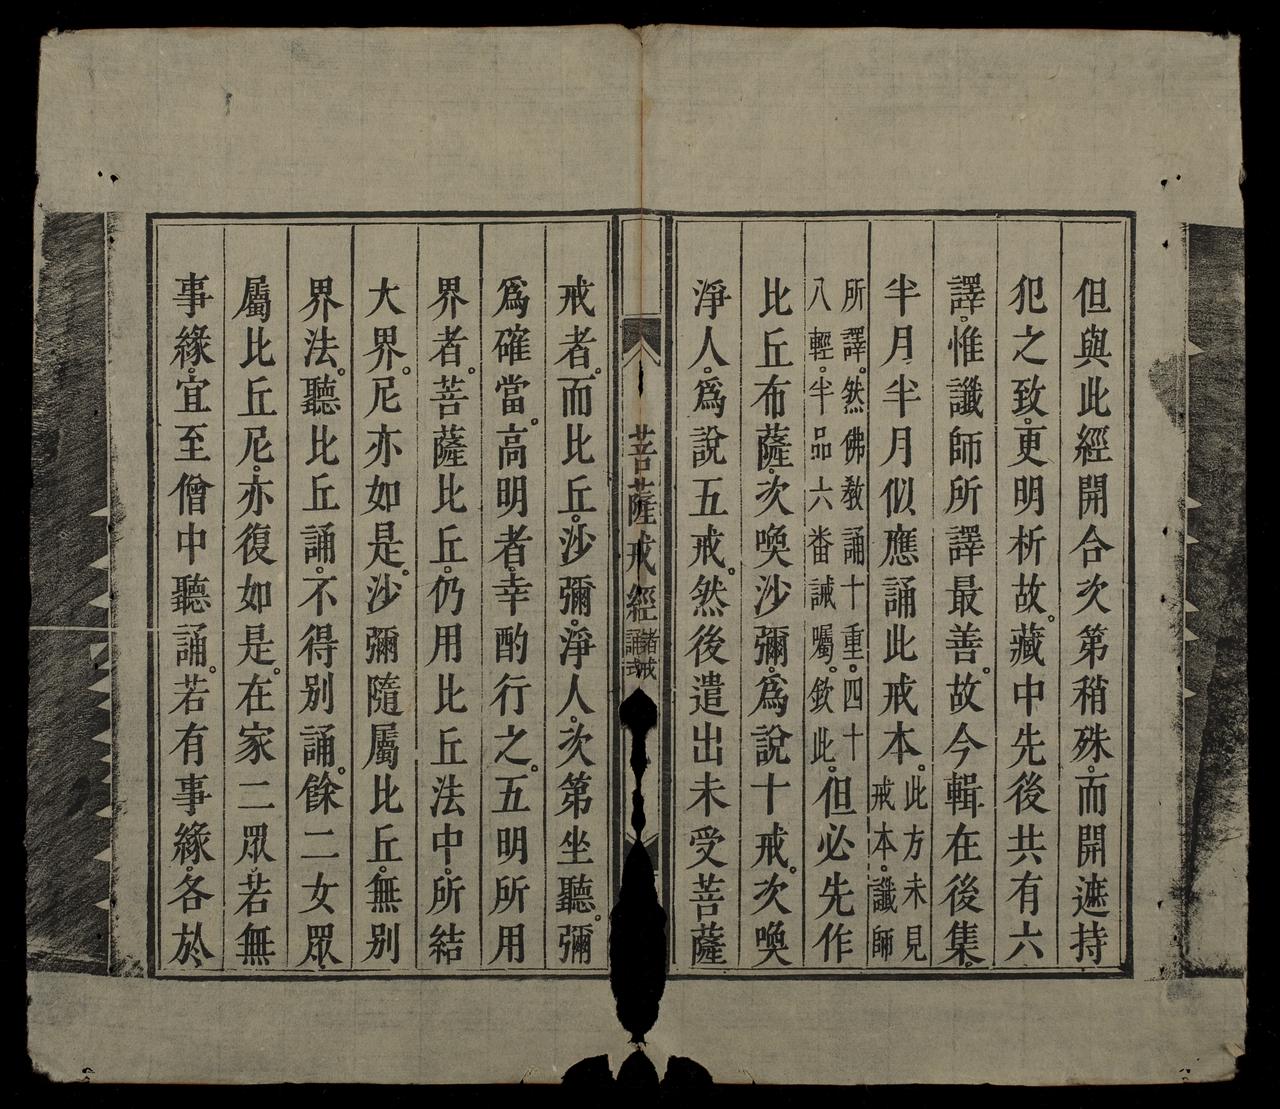 但與此經開合次第稍殊。而開遮持
犯之致。更明析故。藏中先後共有六
譯。惟讖師所譯最善。故今輯在後集。
半月半月似應誦此戒本。此方未見戒本。讖師
所譯。然佛教誦十重。四十八輕。半品六番誡囑。欽此。但必先作
比丘布薩。次喚沙彌。為說十戒。次喚
淨人。為說五戒。然後遣出未受菩薩
菩薩戒經 諸戒誦式
戒者。而比丘。沙彌。淨人。次第坐聽。彌
為確當。高明者。幸酌行之。五明所用
界者。菩薩比丘。仍用比丘法中。所結
大界。尼亦如是。沙彌隨屬比丘。無別
界法。聽比丘誦。不得別誦。餘二女眾。
屬比丘尼。亦復如是。在家二眾。若無
事緣。宜至僧中聽誦。若有事緣。各於